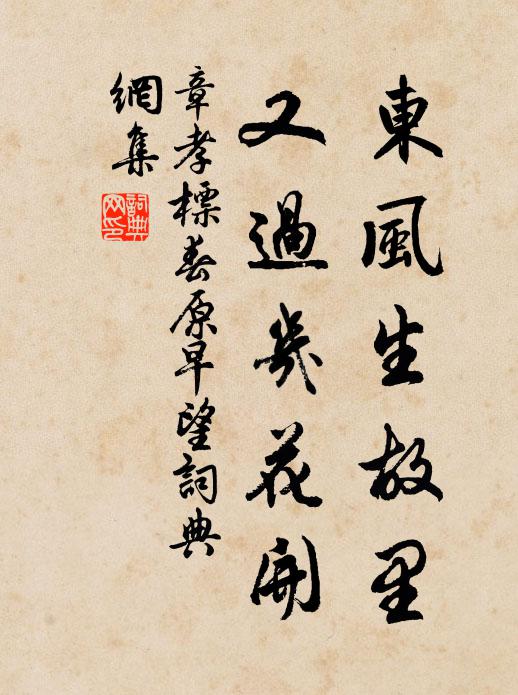 東風生故里
又過幾花開
章孝標春原早望詞典
網集
詞典
网印